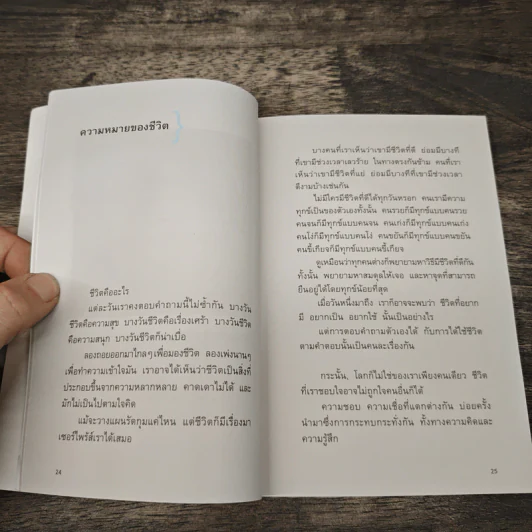 ความหมายของชีวิต
ชีวิตคืออะไร
แต่ละวันเราคงตอบคำถามนี้ไม่ซ้ำกัน บางวัน
ชีวิตคือความสุข บางวันชีวิตคือเรื่องเศร้า บางวันชีวิต
คือความสนุก บางวันชีวิตก็น่าเบื่อ
ลองถอยออกมาไกลๆ เพื่อมองชีวิต ลองเพ่งนานๆ
เพื่อทำความเข้าใจมัน เราอาจได้เห็นว่าชีวิตเป็นสิ่งที่
ประกอบขึ้นจากความหลากหลาย คาดเดาไม่ได้ และ
มักไม่เป็นไปตามใจคิด
แม้จะวางแผนรัดกุมแค่ไหน แต่ชีวิตก็มีเรื่องมา
เซอร์ไพรส์เราได้เสมอ
24
บางคนที่เราเห็นว่าเขามีชีวิตที่ดี ย่อมมีบางที
ที่เขามีช่วงเวลาเลวร้าย ในทางตรงกันข้าม คนที่เรา
เห็นว่าเขามีชีวิตที่แย่ ย่อมมีบางทีที่เขามีช่วงเวลา
ดีงามบ้างเช่นกัน
ไม่มีใครมีชีวิตที่ดีได้ทุกวันหรอก คนเรามีความ
ทุกข์เป็นของตัวเองทั้งนั้น คนรวยก็มีทุกข์แบบคนรวย
คนจนก็มีทุกข์แบบคนจน คนเก่งก็มีทุกข์แบบคนเก่ง
คนโง่ก็มีทุกข์แบบคนโง่ คนขยันก็มีทุกข์แบบคนขยัน
คนขี้เกียจก็มีทุกข์แบบคนขี้เกียจ
ดูเหมือนว่าทุกคนต่างก็พยายามหาวิธีมีชีวิตที่ดีกัน
ทั้งนั้น พยายามหาสมดุลให้เจอ และหาจุดที่สามารถ
ยืนอยู่ได้โดยทุกข์น้อยที่สุด
เมื่อวันหนึ่งมาถึง เราก็อาจจะพบว่า ชีวิตที่อยาก
มี อยากเป็น อยากใช้ นั้นเป็นอย่างไร
แต่การตอบคำถามตัวเองได้ กับการได้ใช้ชีวิต
ตามคำตอบนั้นเป็นคนละเรื่องกัน
กระนั้น โลกก็ไม่ใช่ของเราเพียงคนเดียว ชีวิต
ที่เราชอบใจอาจไม่ถูกใจคนอื่นก็ได้
ความชอบ ความเชื่อที่แตกต่างกัน บ่อยครั้ง
นำมาซึ่งการกระทบกระทั่งกัน ทั้งทางความคิดและ
ความรู้สึก
25